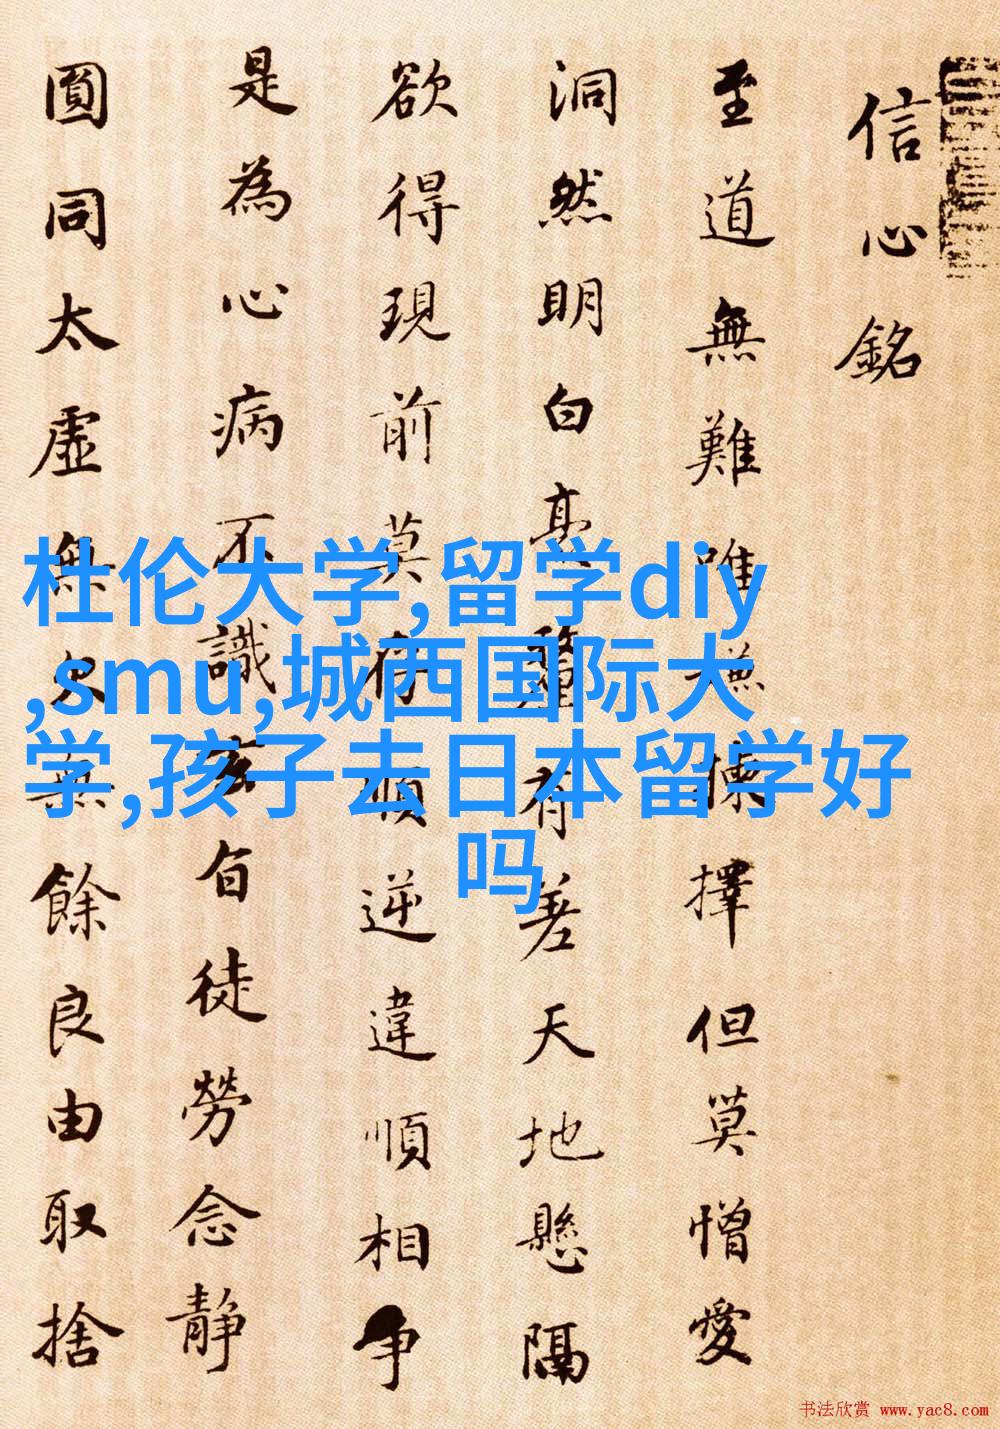 信心銘
至道無難唯嫌揀擇但莫憎愛
洞然明白毫釐有差天地懸隔
欲得現前莫存順逆違順相争
是為心病不識玄旨徒勞念静
圓同太虛無欠無餘良由取捨
杜伦大学,留学diy
,smu,城西国际大
学,孩子去日本留学好
吗
书法欣赏 www.yac8.com